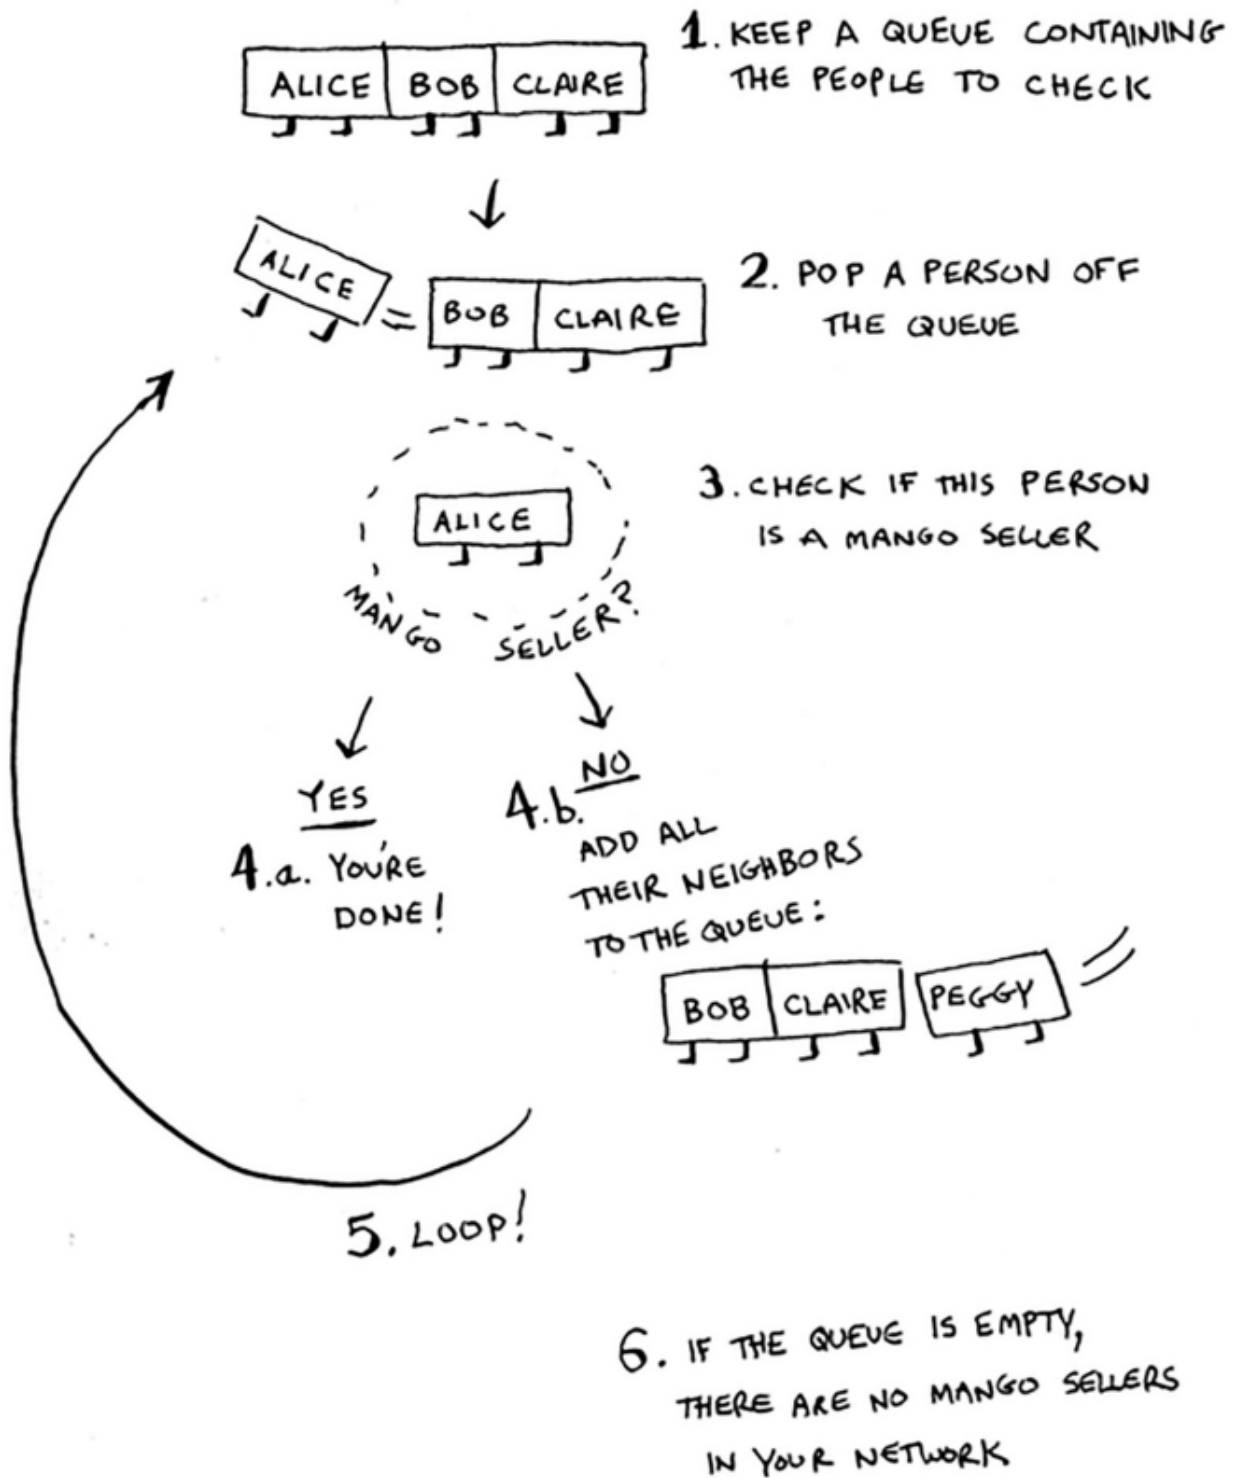 1. KEEP A QUEUE CONTAINING
THE PEOPLE TO CHECK
ALICE BOB CLAIRE
ALICE BOB CLAIRE
2. POP A PERSON OFF
THE QUEUE
ALICE
MANGO SELLER?
3. CHECK IF THIS PERSON
IS A MANGO SELLER
YES
4.a. YOU'RE
DONE!
NO
4.b.
ADD ALL
THEIR NEIGHBORS
TO THE QUEUE:
BOB CLAIRE PEGGY
5. LOOP!
6. IF THE QUEUE IS EMPTY,
THERE ARE NO MANGO SELLERS
IN YOUR NETWORK